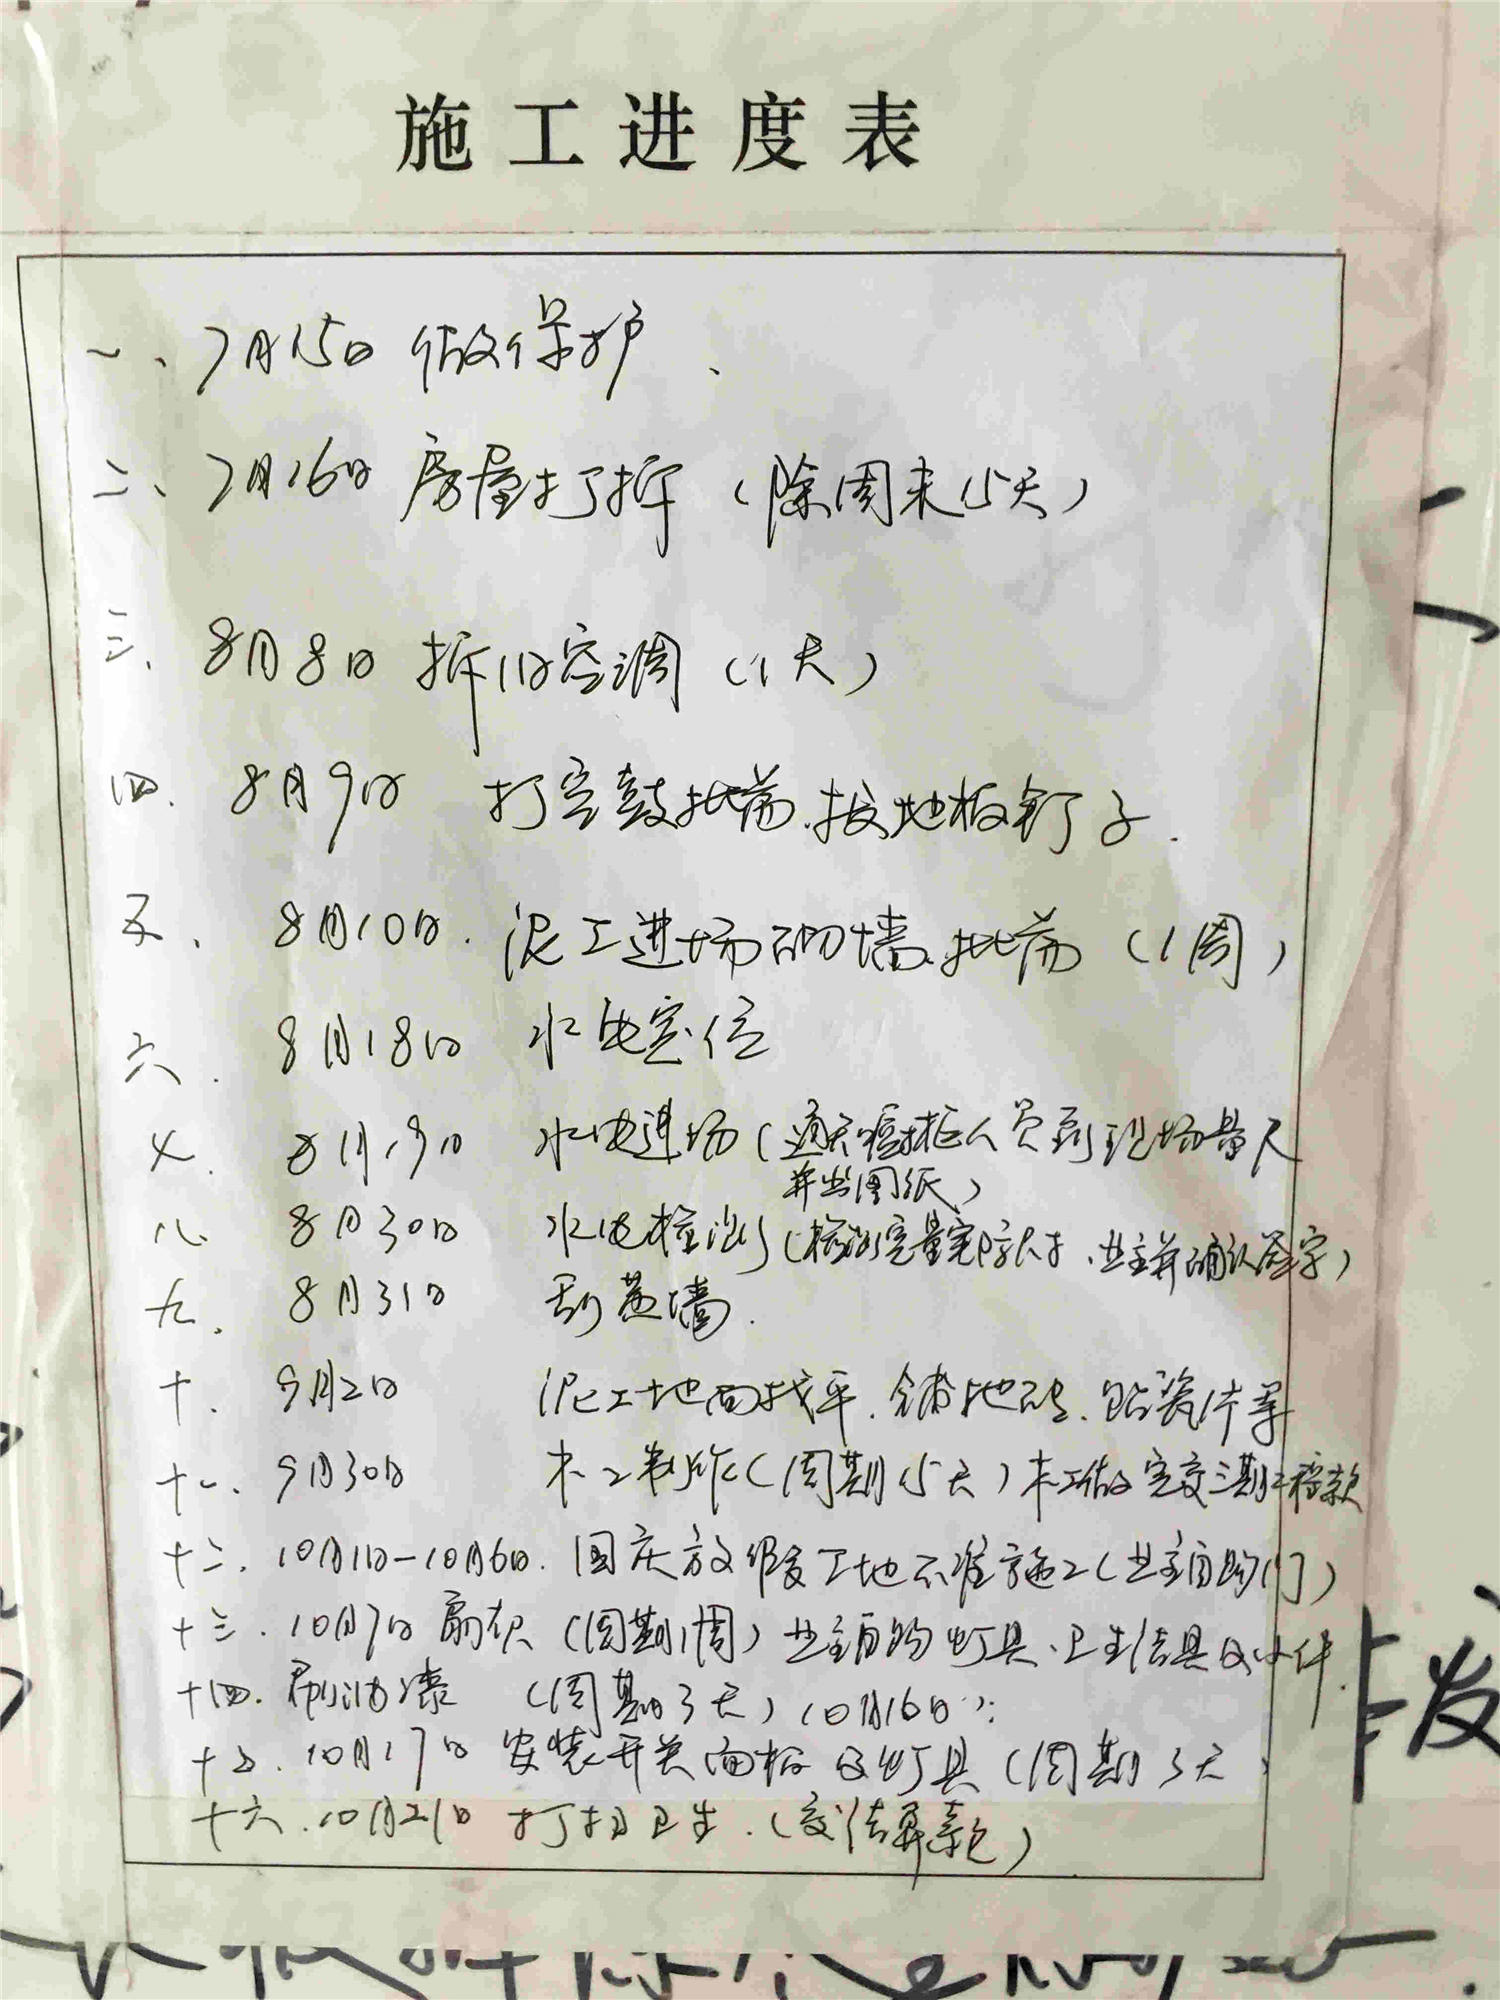 施工进度表
一、7月15日 做保护、
二、7月16日 房屋打拆(除周末15天)
三、8月8日 拆旧空调(1天)
四、8月9日 打空鼓批荡、拔地板钉子.
五、8月10日. 泥工进场砌墙、批荡(1周)
六. 8月18日 水电定位
七. 8月19日 水电进场(通知橱柜人员到现场量尺
并出图纸)
八、8月30日 水电检测(检测完量完,业主并确认签字)
九. 8月31日 刮黄墙.
十. 9月2日 泥工地面找平、铺地砖、贴瓷片等
十一、9月30日 木工制作(周期15天)木工做完交三期工程款
十二、10月1日-10月6日. 国庆放假工地不准施工(业主自购门)
十三. 10月7日 扇灰(周期1周)业主自购灯具、卫生洁具及小件.
十四. 刷油漆 (周期3天)10月16日
十五. 10月17日 安装开关面板及灯具(周期3天)
十六.10月21日 打扫卫生.(交结算款)
发